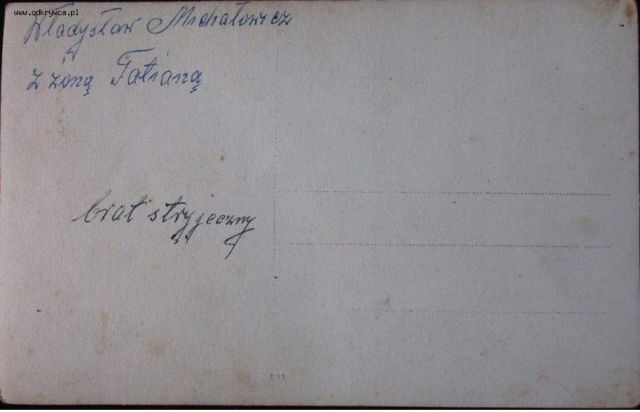 www.odkrywca.pl
Władysław Michałowicz
z żoną Tatianą
brat stryjeczny